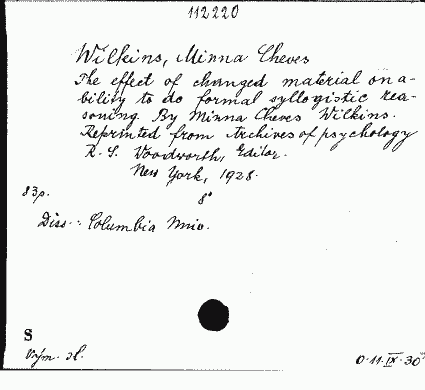 112220
Wilkins, Minna Cheves
The effect of changed material on a-
bility to do formal syllogistic rea-
soning. By Minna Cheves Wilkins.
Reprinted from Archives of psychology
R. S. Woodworth, Editor.
New York, 1928.
83p. 8°
Diss.: Columbia Univ.
S
0.11.IX.30